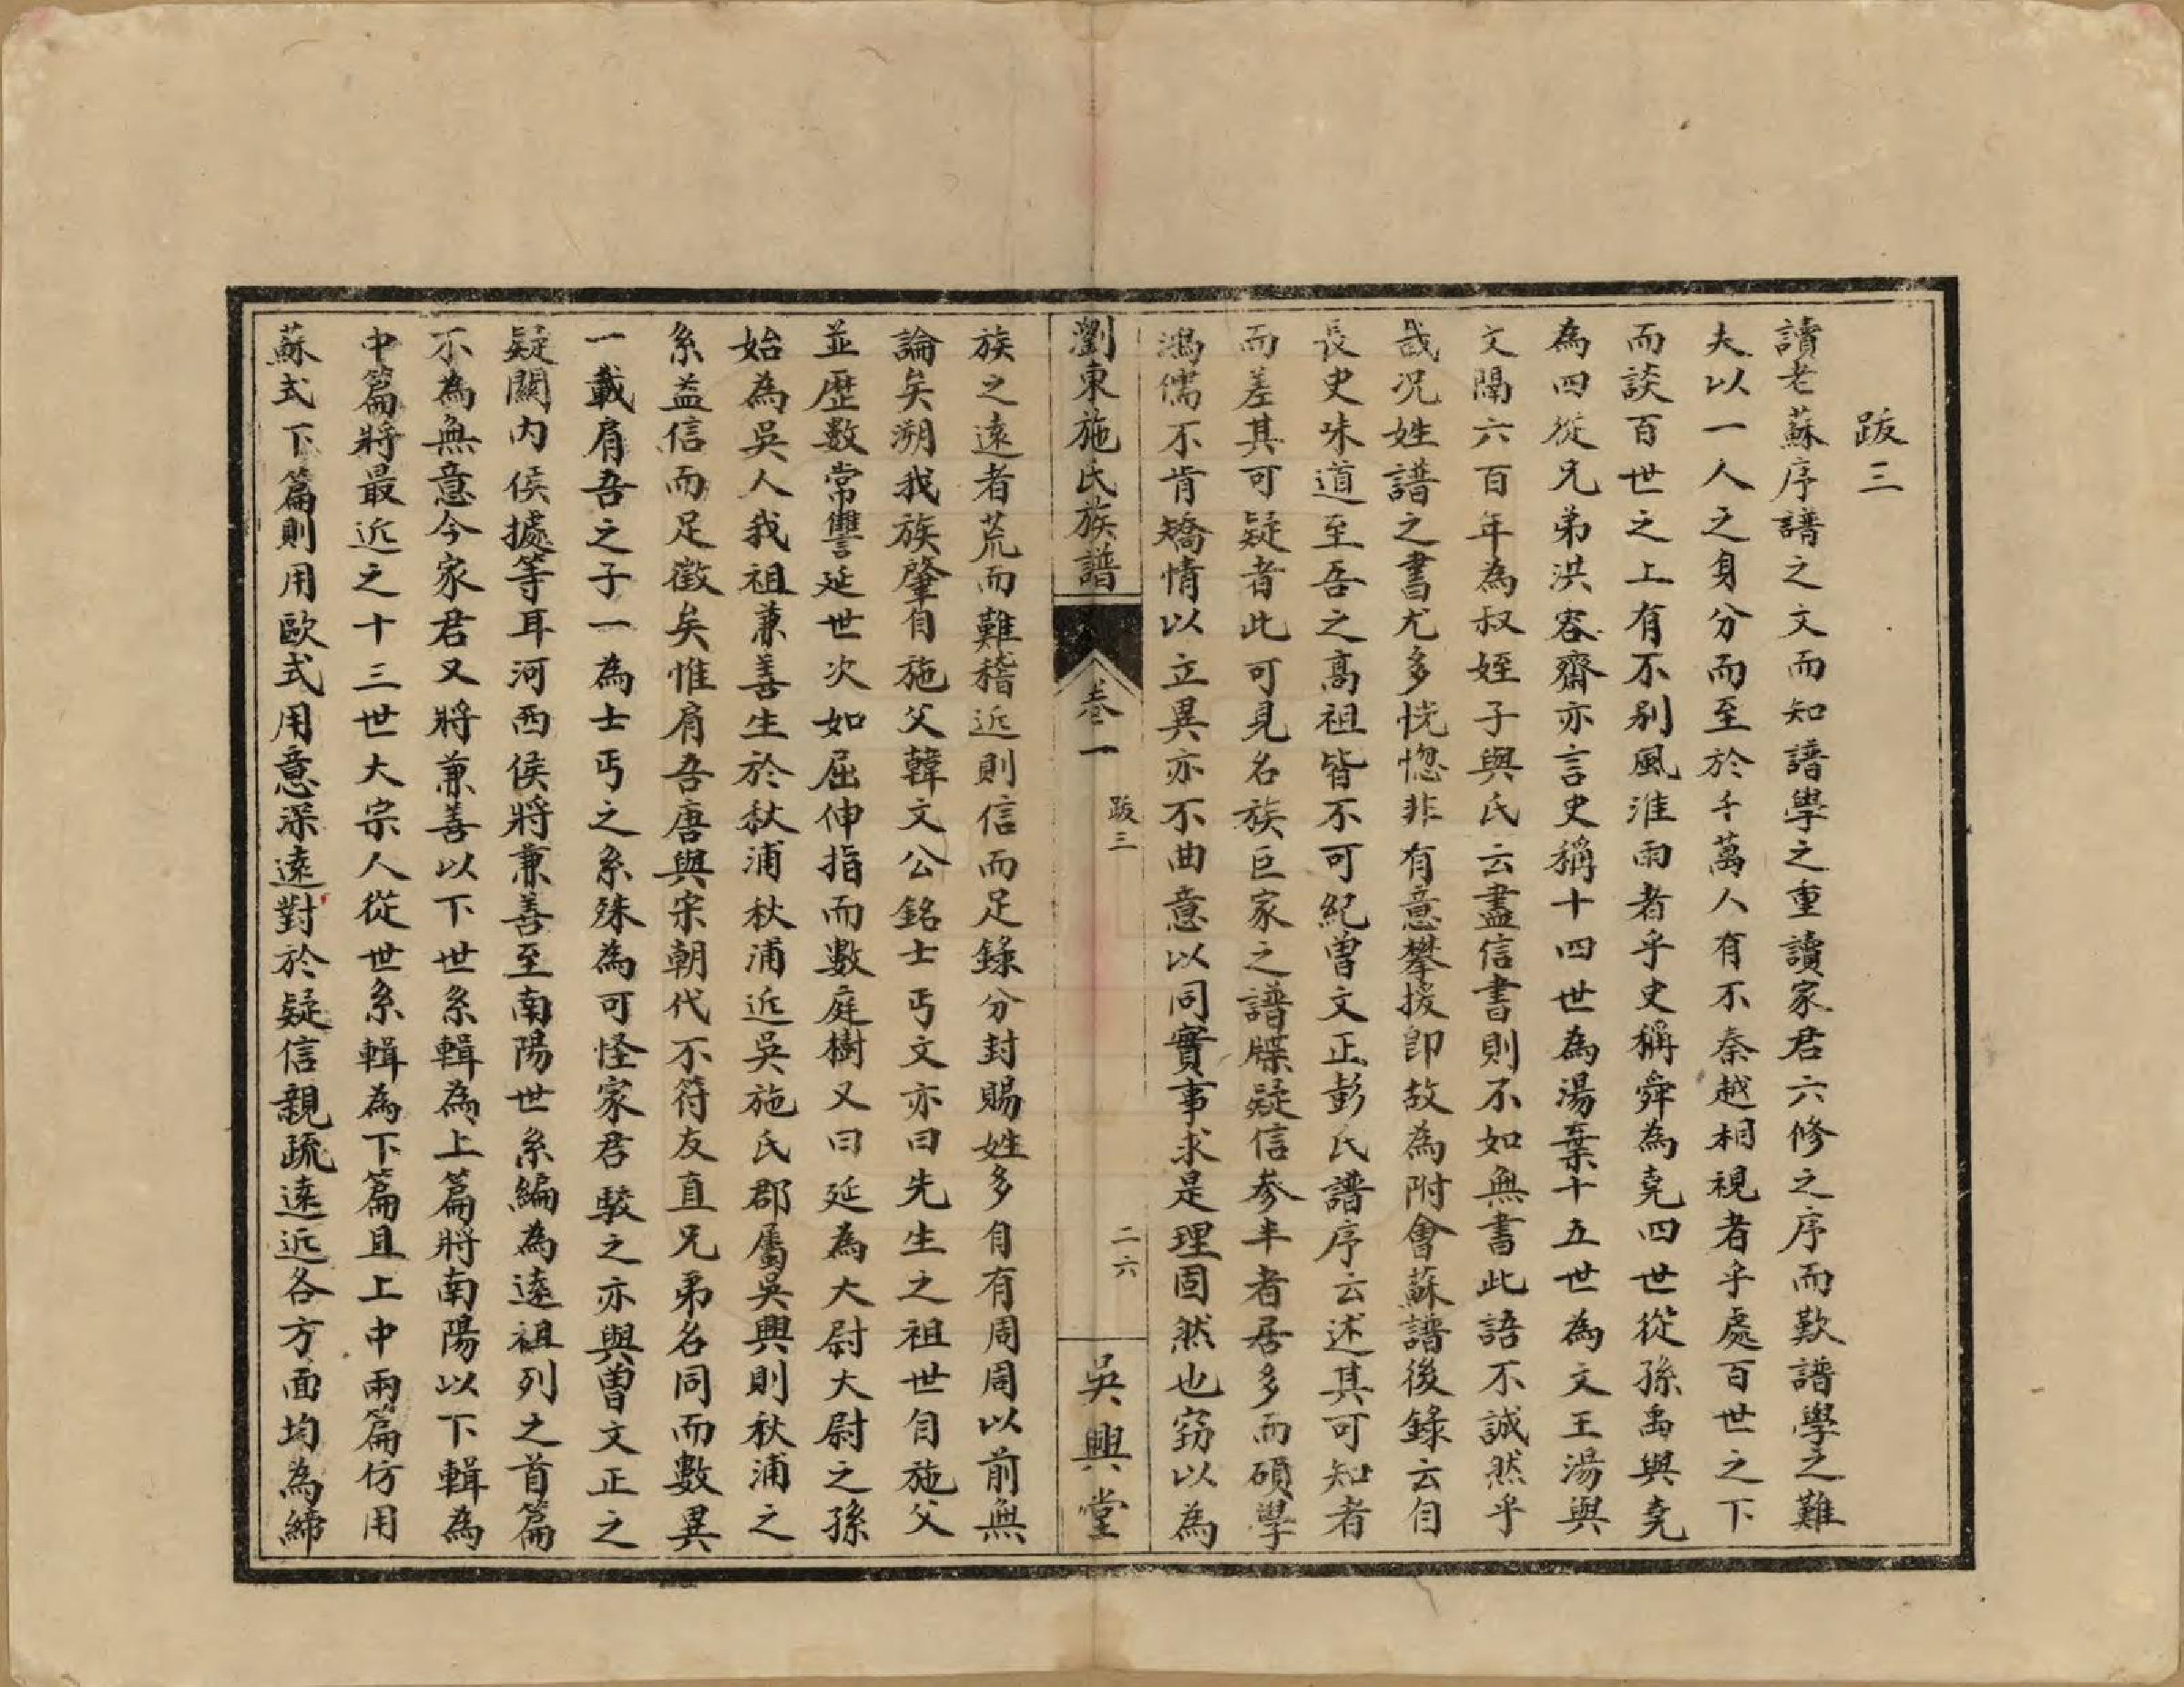 跋三
讀老蘇序譜之文而知譜學之重讀家君六修之序而歎譜學之難
夫以一人之身分而至於千萬人有不秦越相視者乎處百世之下
而談百世之上有不别風淮雨者乎史稱舜為堯四世從孫禹與堯
為四從兄弟洪容齋亦言史稱十四世為湯棄十五世為文王湯與
文隔六百年為叔姪子輿氏云盡信書則不如無書此語不誠然乎
哉况姓譜之書尤多恍惚非有意攀援即故為附會蘇譜後錄云自
長史味道至吾之高祖皆不可紀曾文正彭氏譜序云述其可知者
而差其可疑者此可見名族巨家之譜牒疑信參半者居多而碩學
鴻儒不肯矯情以立異亦不曲意以同實事求是理固然也窈以為
瀏東施氏族譜
卷一
跋三
二六
吳興堂
族之遠者荒而難稽近則信而足錄分封賜姓多自有周周以前無
論矣溯我族肇自施父韓文公銘士丐文亦曰先生之祖世自施父
並歷數常讐延世次如屈伸指而數庭樹又曰延為大尉大尉之孫
始為吳人我祖兼善生於秋浦秋浦近吳施氏郡屬吳興則秋浦之
系益信而足徵矣惟肩吾唐與宋朝代不符友直兄弟名同而數異
一載肩吾之子一為士丐之系殊為可怪家君駮之亦與曾文正之
疑關内侯據等耳河西侯將兼善至南陽世系編為遠祖列之首篇
不為無意今家君又將兼善以下世系輯為上篇將南陽以下輯為
中篇將最近之十三世大宗人從世系輯為下篇且上中兩篇仿用
蘇式下篇則用歐式用意深遠對於疑信親疏遠近各方面均為締